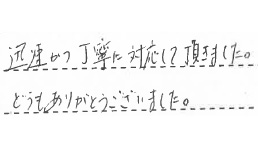 迅速かつ丁寧に対応して頂きました。
どうもありがとうございました。